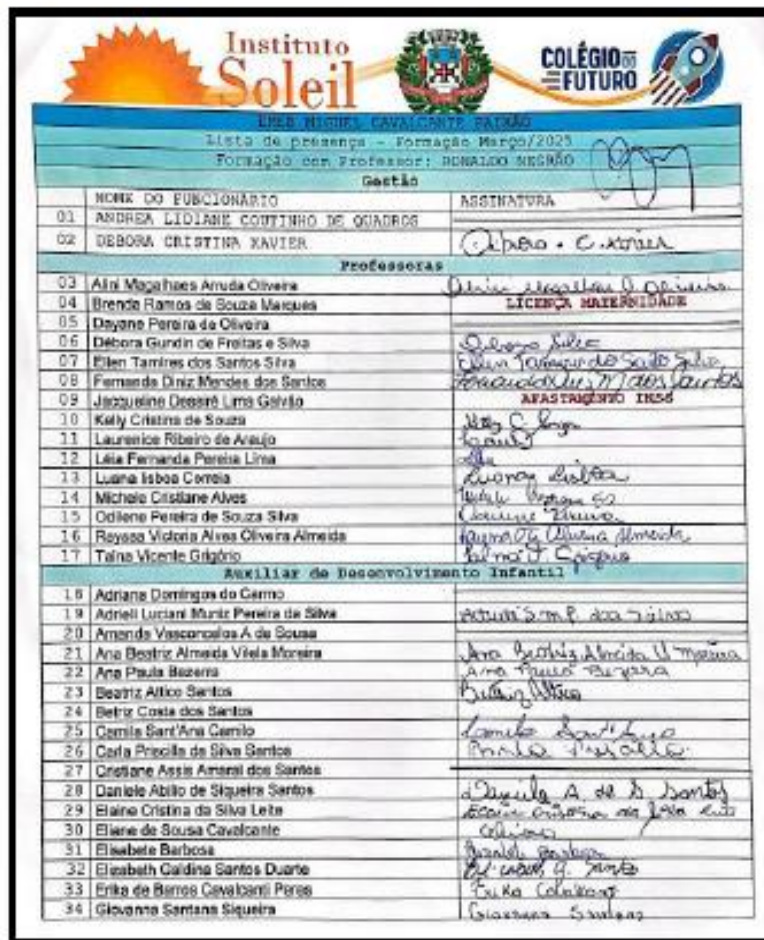 Instituto
Soleil
COLÉGIO DO
FUTURO
EMEB MIGUEL CAVALCANTE PAIXÃO
Lista de presença - Formação Março/2025
Formação com Professor: RONALDO NEGRÃO
Gestão
NOME DO FUNCIONÁRIO ASSINATURA
01 ANDREA LIDIANE COUTINHO DE QUADROS
02 DEBORA CRISTINA XAVIER Débora . C. Xavier
Professoras
03 Alini Magalhaes Arruda Oliveira
04 Brenda Ramos de Souza Marques LICENÇA MATERNIDADE
05 Dayane Pereira de Oliveira
06 Débora Gundin de Freitas e Silva Débora Silva
07 Ellen Tamires dos Santos Silva Ellen Tamires dos Santos Silva
08 Fernanda Diniz Mendes dos Santos
09 Jacqueline Desirê Lima Galvão AFASTAMENTO INSS
10 Kelly Cristina de Souza
11 Laurenice Ribeiro de Araujo
12 Léia Fernanda Pereira Lima
13 Luana lisboa Correia Luana Lisboa
14 Michele Cristiane Alves
15 Odilene Pereira de Souza Silva
16 Rayssa Victoria Alves Oliveira Almeida
17 Taina Vicente Grigório
Auxiliar de Desenvolvimento Infantil
18 Adriana Domingos do Carmo
19 Adrieli Luciani Muniz Pereira da Silva
20 Amanda Vasconcelos A de Sousa
21 Ana Beatriz Almeida Vilela Moreira Ana Beatriz Almeida V Moreira
22 Ana Paula Bezerra Ana Paula Bezerra
23 Beatriz Altico Santos Beatriz Altico
24 Betriz Costa dos Santos
25 Camila Sant'Ana Camilo Camila Sant'Ana
26 Carla Priscilla da Silva Santos
27 Cristiane Assis Amaral dos Santos
28 Daniele Abilio de Siqueira Santos Daniele A. de S. Santos
29 Elaine Cristina da Silva Leite Elaine Cristina da Silva Leite
30 Eliane de Sousa Cavalcante Eliane
31 Elisabete Barbosa
32 Elizabeth Caldina Santos Duarte
33 Erika de Barros Cavalcanti Peres Erika Cavalcanti
34 Giovanna Santana Siqueira Giovanna Santana